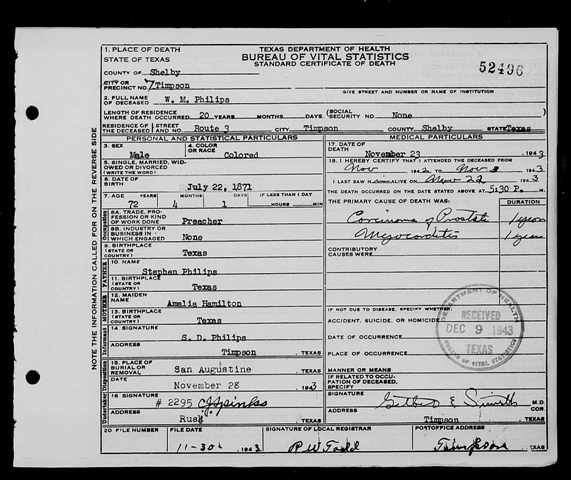 1. PLACE OF DEATH
STATE OF TEXAS
TEXAS DEPARTMENT OF HEALTH
BUREAU OF VITAL STATISTICS
STANDARD CERTIFICATE OF DEATH
52496
COUNTY OF Shelby
CITY OR PRECINCT NO. 7/Timpson
GIVE STREET AND NUMBER OR NAME OF INSTITUTION
2. FULL NAME OF DECEASED W. M. Philips
LENGTH OF RESIDENCE WHERE DEATH OCCURRED 20 YEARS MONTHS DAYS
(SOCIAL SECURITY NO. None
RESIDENCE OF THE DECEASED STREET AND NO. Route 3 CITY Timpson COUNTY Shelby STATE Texas
PERSONAL AND STATISTICAL PARTICULARS
3. SEX Male
4. COLOR OR RACE Colored
5. SINGLE, MARRIED, WIDOWED OR DIVORCED (WRITE THE WORD)
6. DATE OF BIRTH July 22, 1871
7. AGE YEARS 72 MONTHS 4 DAYS 1 IF LESS THAN 1 DAY HOURS MIN.
8A. TRADE, PROFESSION OR KIND OF WORK DONE Preacher
8B. INDUSTRY OR BUSINESS IN WHICH ENGAGED None
9. BIRTHPLACE (STATE OR COUNTRY) Texas
FATHER
10. NAME Stephen Philips
11. BIRTHPLACE (STATE OR COUNTRY) Texas
MOTHER
12. MAIDEN NAME Amelia Hamilton
13. BIRTHPLACE (STATE OR COUNTRY) Texas
14. SIGNATURE S. D. Philips
Timpson, TEXAS
15. PLACE OF BURIAL OR REMOVAL San Augustine, TEXAS
DATE November 28 1943
16. SIGNATURE # 2295
Rusk, TEXAS
20. FILE NUMBER
FILE DATE 11-30, 1943
MEDICAL PARTICULARS
17. DATE OF DEATH November 23, 1943
18. I HEREBY CERTIFY THAT I ATTENDED THE DECEASED FROM
Nov 1942 TO Nov 1943
I LAST SAW H ALIVE ON Nov 22 1943
THE DEATH OCCURRED ON THE DATE STATED ABOVE AT 5:30 P. M.
THE PRIMARY CAUSE OF DEATH WAS: DURATION
Carcinoma of Prostate 1 year
Myocarditis 1 year
CONTRIBUTORY CAUSES WERE:
IF NOT DUE TO DISEASE, SPECIFY WHETHER:
ACCIDENT, SUICIDE, OR HOMICIDE
DATE OF OCCURRENCE
PLACE OF OCCURRENCE
MANNER OR MEANS
IF RELATED TO OCCUPATION OF DECEASED, SPECIFY
SIGNATURE Gilbert E Smith M.D.
Timpson, TEXAS
SIGNATURE OF LOCAL REGISTRAR R W Todd
POSTOFFICE ADDRESS Timpson, TEXAS
DEPARTMENT OF HEALTH
RECEIVED
DEC 9 1943
TEXAS
BUREAU OF VITAL STATISTICS
NOTE THE INFORMATION CALLED FOR ON THE REVERSE SIDE